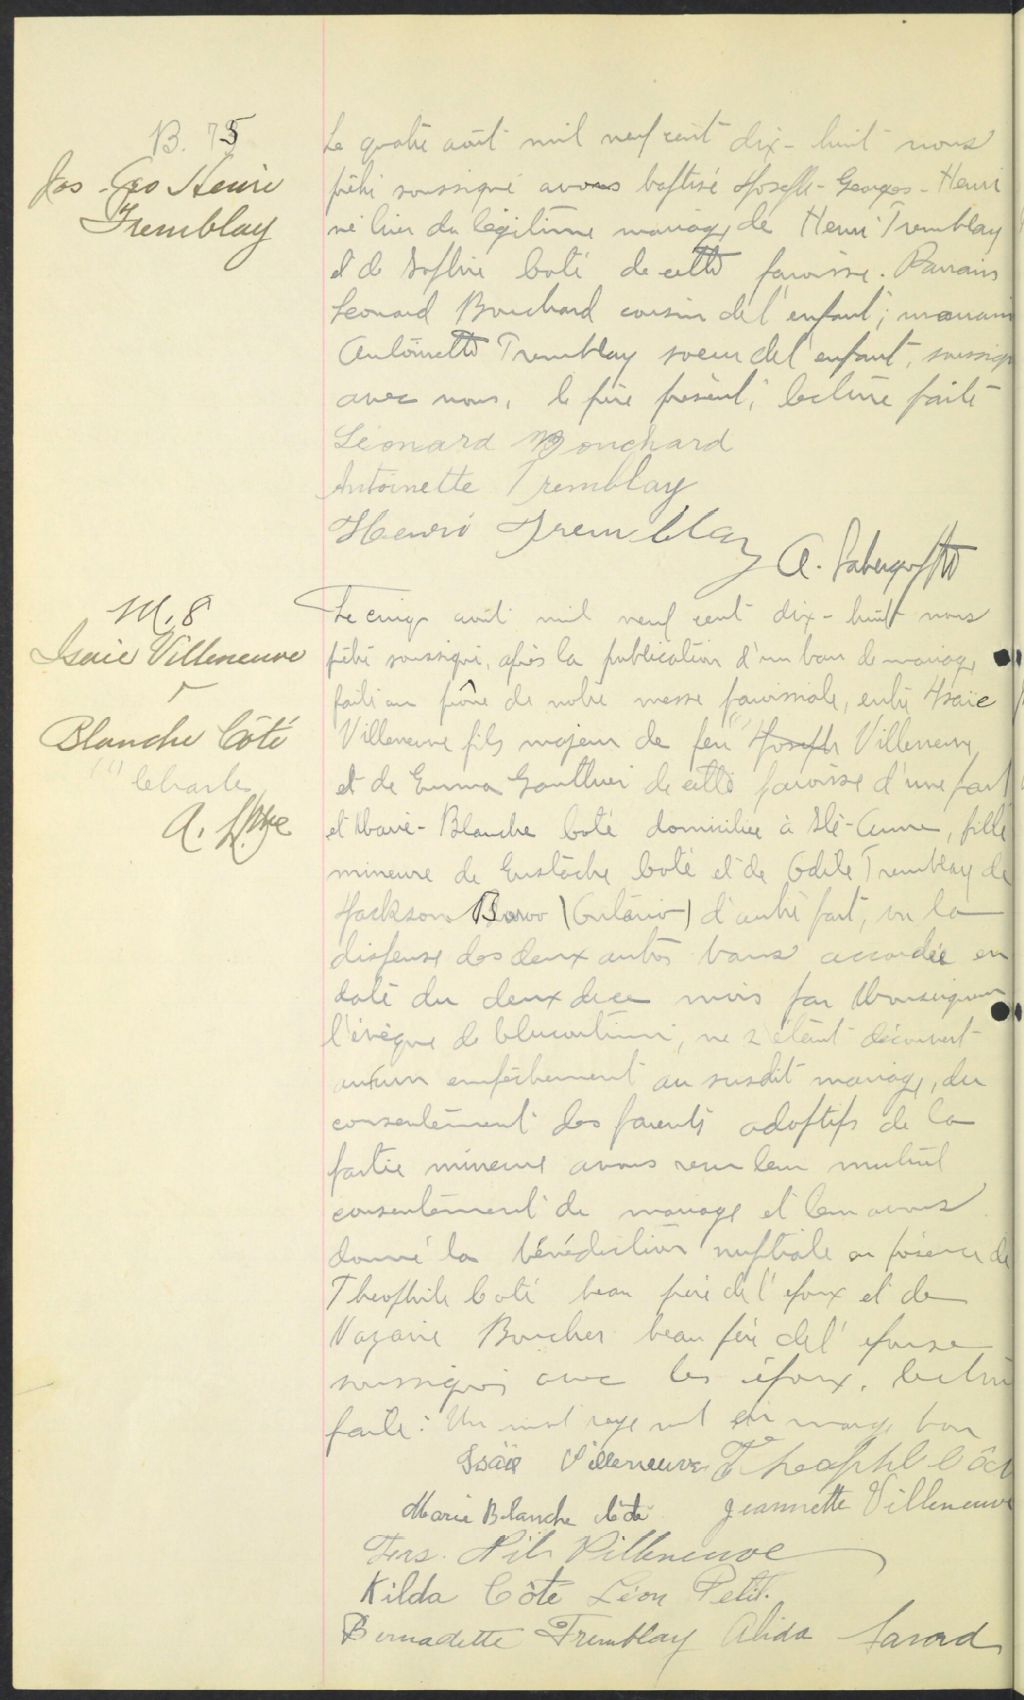 B. 75
Jos-Geo Henri
Tremblay
Le quatre août mil neuf cent dix-huit nous
prêtre soussigné avons baptisé Joseph-Georges-Henri
né hier du légitime mariage de Henri Tremblay
et de Sophie Coté de cette paroisse. Parrain
Leonard Bouchard cousin de l'enfant; marraine
Antoinette Tremblay soeur de l'enfant, soussignés
avec nous, le père présent, lecture faite
Léonard Bouchard
Antoinette Tremblay
Henri Tremblay
A.
M. 8
Isaïe Villeneuve
Blanche Côté
(1) Charles
A.
Le cinq août mil neuf cent dix-huit nous
prêtre soussigné, après la publication d'un ban de mariage
faite au prône de notre messe paroissiale, entre Isaïe
Villeneuve fils majeur de feu (1) Joseph Villeneuve
et de Emma Gauthier de cette paroisse d'une part
et Marie-Blanche Coté domiciliée à Ste-Anne, fille
mineure de Eustache Coté et de Odile Tremblay de
Jackson (Ontario) d'autre part, vu la
dispense des deux autres bans accordée en
date du deux de ce mois par Monseigneur
l'évêque de Chicoutimi, ne s'étant découvert
aucun empêchement au susdit mariage, du
consentement des parents adoptifs de la
partie mineure avons reçu leur mutuel
consentement de mariage et leur avons
donné la bénédiction nuptiale en présence de
Theophile Coté beau père de l'époux et de
Nazaire Boucher beau père de l'épouse
soussignés avec les époux, lecture
faite: Un mot rayé nul en marge bon
Isaïe Villeneuve Theophile Côté
Marie Blanche Côté Jeannette Villeneuve
Frs. Nil Villeneuve
Kilda Côté Léon Petit.
Bernadette Tremblay Alida Savard